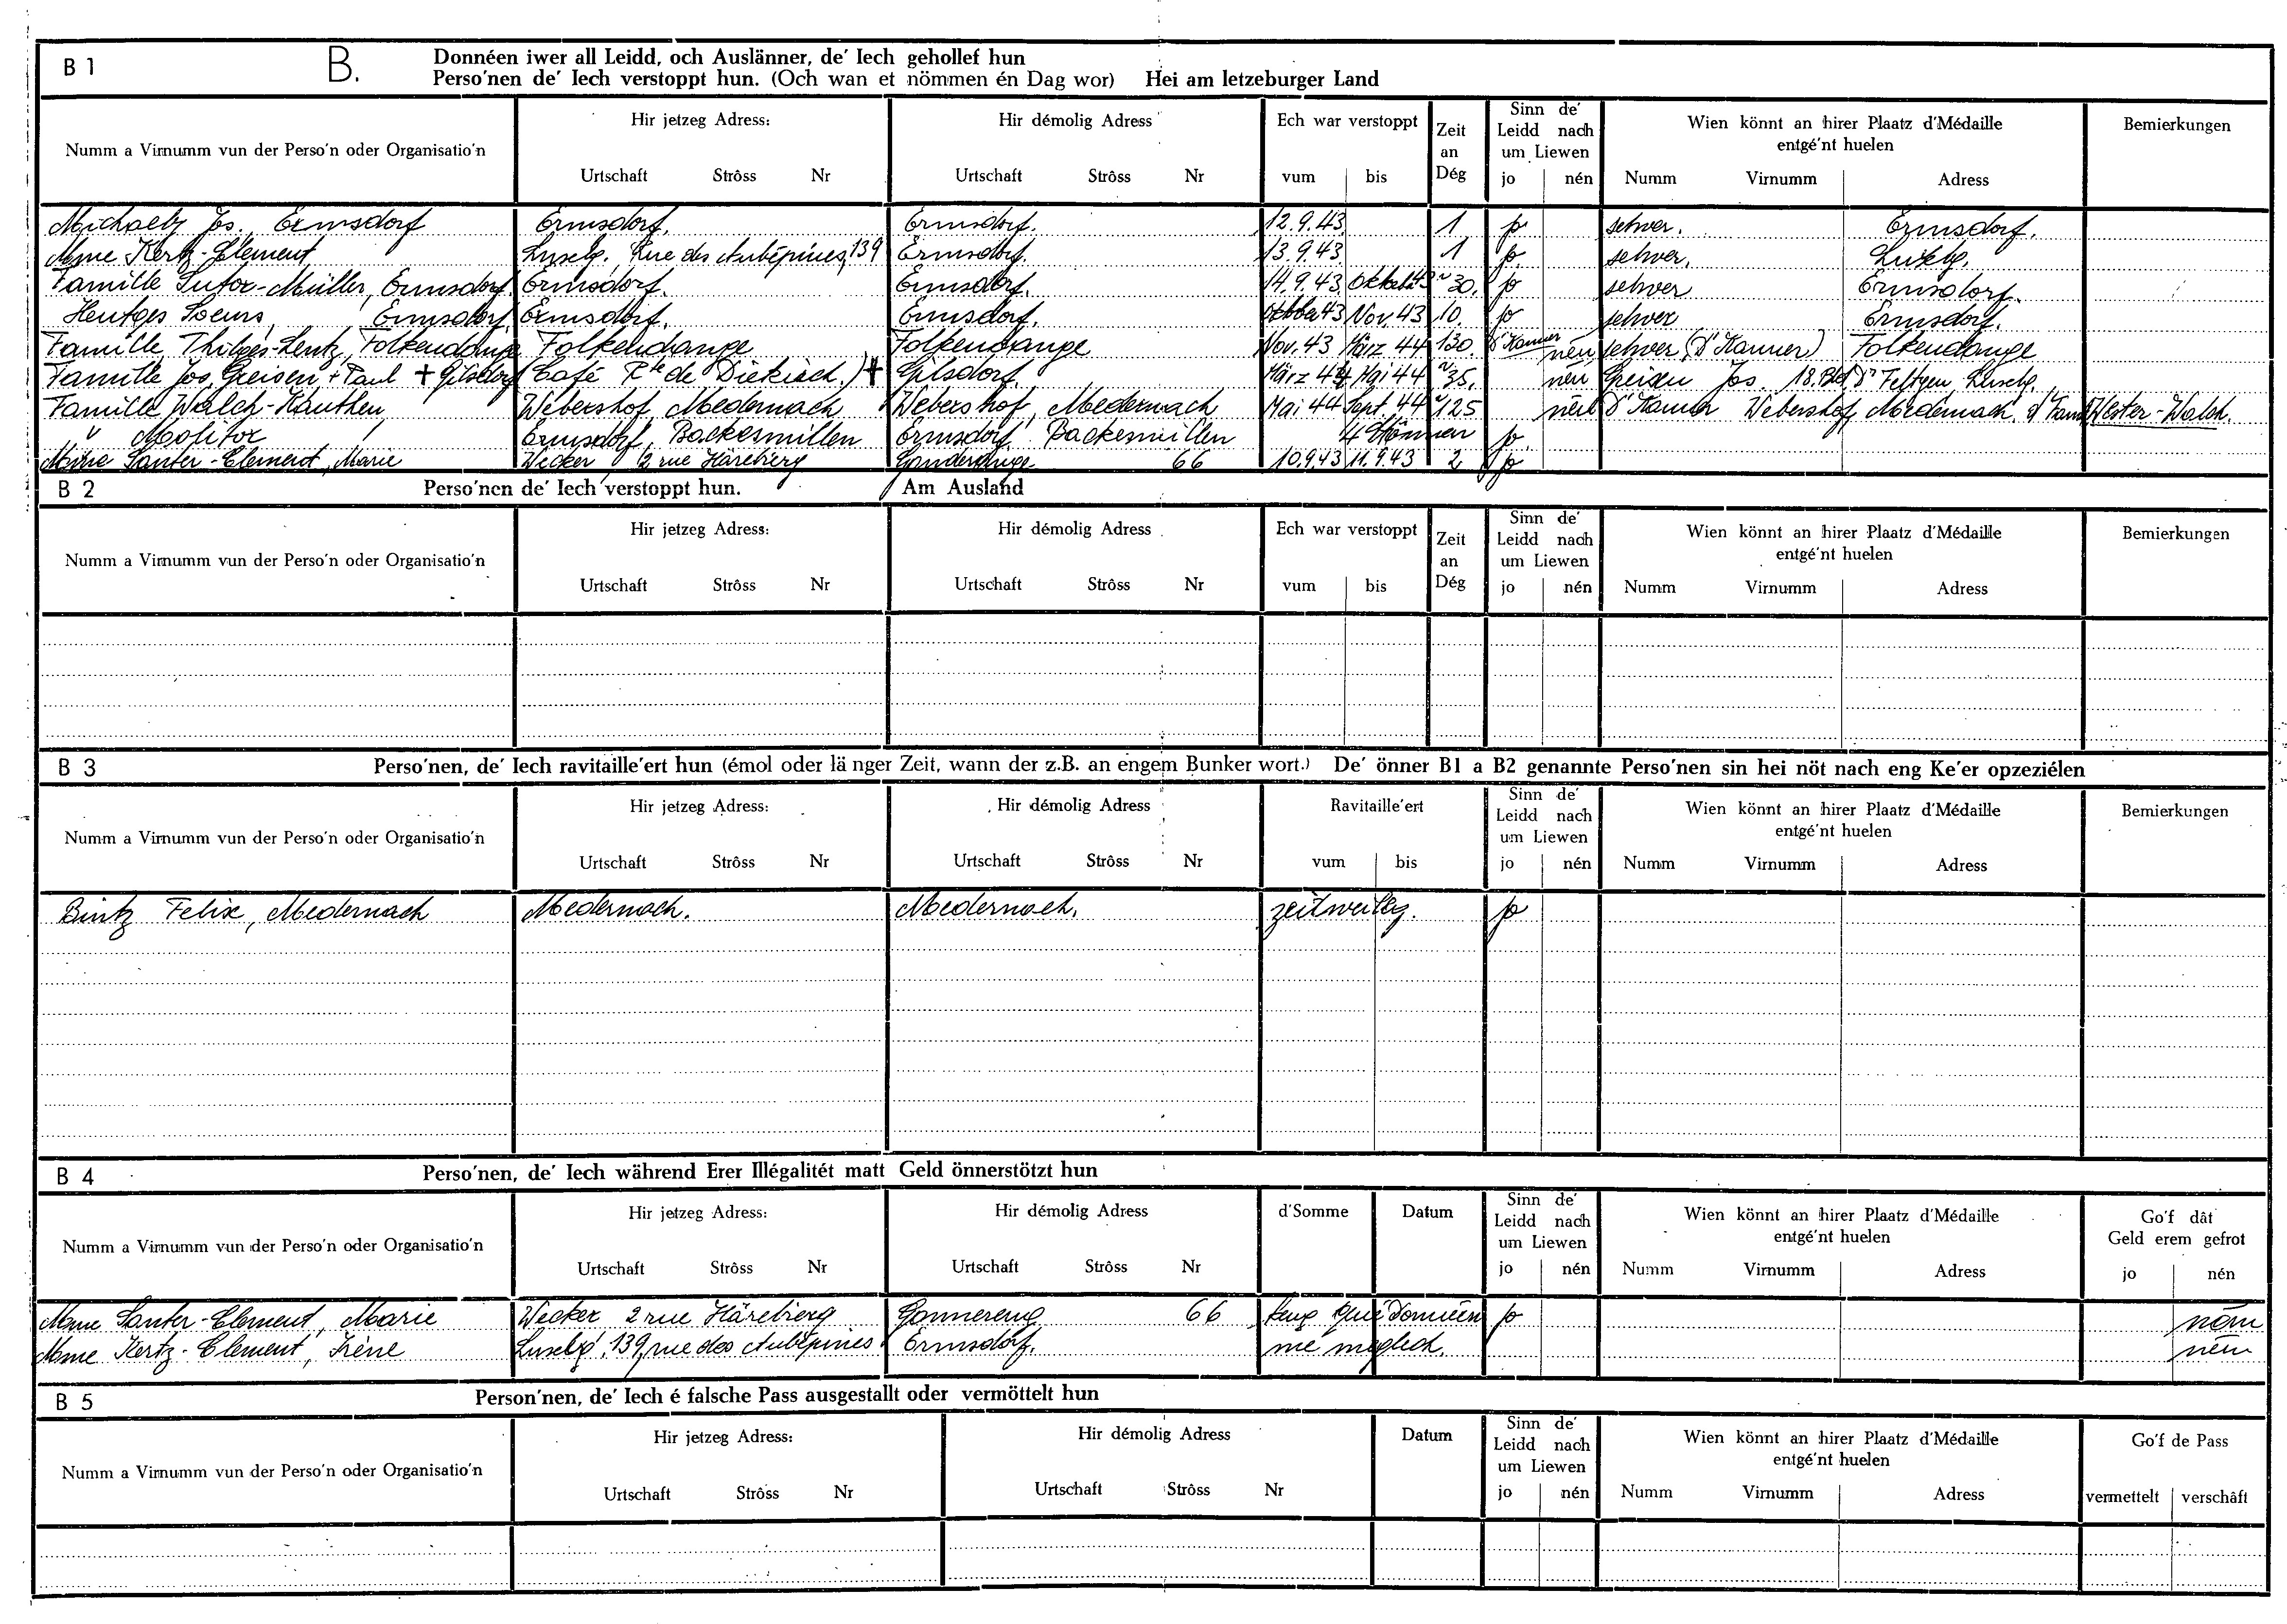 B 1 B. Donnéen iwer all Leidd, och Auslänner, de' Iech gehollef hun
Perso'nen de' Iech verstoppt hun. (Och wan et nömmen én Dag wor) Hei am letzeburger Land
Numm a Virnumm vun der Perso'n oder Organisatio'n
Hir jetzeg Adress:
Urtschaft Strôss Nr
Hir démolig Adress
Urtschaft Strôss Nr
Ech war verstoppt
vum bis
Zeit
an
Dég
Sinn de'
Leidd nach
um Liewen
jo nén
Wien könnt an hirer Plaatz d'Médaille
entgé'nt huelen
Numm Virnumm Adress
Bemierkungen
Jos. Ermsdorf Ermsdorf. Ermsdorf. 12.9.43 1 jo selwer. Ermsdorf.
Mme Kertz-Clement Luxbg. Rue des Aubépines, 139 Ermsdorf. 13.9.43 1 jo selwer. Luxbg.
Famille Sutor-Müller, Ermsdorf. Ermsdorf. Ermsdorf. 14.9.43 ~30. jo selwer Ermsdorf.
Hentges Soeurs, Ermsdorf Ermsdorf. Ermsdorf. Nov. 43 10. jo selwer Ermsdorf.
Famille Thilges-Lentz, Folkendange Folkendange Folkendange Nov. 43 März 44 130 d'Kanner nén selwer (d'Kanner) Folkendange
Famille Jos. Greisen + Paul + Gilsdorf Café Rte de Diekirch.) + Gilsdorf. März 44 Mai 44 ~35. nén Jos. Feltgen, Luxbg.
Famille Walch-Kauthen, Webershof, Medernach Webershof, Medernach Mai 44 Sept. 44 ~125 nén d'Kanner Webershof, Medernach, d' Wester-Walch.
" Molitor Ermsdorf, Backesmillen Ermsdorf Backesmillen 4 jo
Mme Santer-Clement, Marie Wecker 2 rue Häreberg Gonderange 66 10.9.43 11.9.43 2 jo
B 2 Perso'nen de' Iech verstoppt hun. Am Ausland
Numm a Virnumm vun der Perso'n oder Organisatio'n
Hir jetzeg Adress:
Urtschaft Strôss Nr
Hir démolig Adress
Urtschaft Strôss Nr
Ech war verstoppt
vum bis
Zeit
an
Dég
Sinn de'
Leidd nach
um Liewen
jo nén
Wien könnt an hirer Plaatz d'Médaille
entgé'nt huelen
Numm Virnumm Adress
Bemierkungen
B 3 Perso'nen, de' Iech ravitaille'ert hun (émol oder länger Zeit, wann der z.B. an engem Bunker wort.) De' önner B1 a B2 genannte Perso'nen sin hei nöt nach eng Ke'er opzeziélen
Numm a Virnumm vun der Perso'n oder Organisatio'n
Hir jetzeg Adress:
Urtschaft Strôss Nr
Hir démolig Adress
Urtschaft Strôss Nr
Ravitaille'ert
vum bis
Sinn de'
Leidd nach
um Liewen
jo nén
Wien könnt an hirer Plaatz d'Médaille
entgé'nt huelen
Numm Virnumm Adress
Bemierkungen
Bintz Felix, Medernach Medernach. Medernach. zeitweileg. jo
B 4 Perso'nen, de' Iech während Erer Illégalitét matt Geld önnerstötzt hun
Numm a Virnumm vun der Perso'n oder Organisatio'n
Hir jetzeg Adress:
Urtschaft Strôss Nr
Hir démolig Adress
Urtschaft Strôss Nr
d'Somme
Datum
Sinn de'
Leidd nach
um Liewen
jo nén
Wien könnt an hirer Plaatz d'Médaille
entgé'nt huelen
Numm Virnumm Adress
Go'f dât
Geld erem gefrot
jo nén
Mme Santer-Clement, Marie Wecker 2 rue Häreberg 66 Donnéen jo
Mme Kertz-Clement, Irène Luxbg, 139, rue des Aubépines Ermsdorf. méglech. nén
B 5 Person'nen, de' Iech é falsche Pass ausgestallt oder vermöttelt hun
Numm a Virnumm vun der Perso'n oder Organisatio'n
Hir jetzeg Adress:
Urtschaft Strôss Nr
Hir démolig Adress
Urtschaft Strôss Nr
Datum
Sinn de'
Leidd nach
um Liewen
jo nén
Wien könnt an hirer Plaatz d'Médaille
entgé'nt huelen
Numm Virnumm Adress
Go'f de Pass
vermettelt verschâft